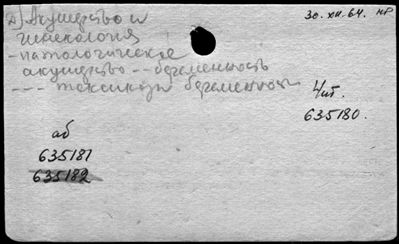 Д) Акушерство и
30.XII.64. НР
гинекология
- патологическое
акушерство -- беременность
--- токсикозы беременности
Чит.
635180.
аб
635181
635182